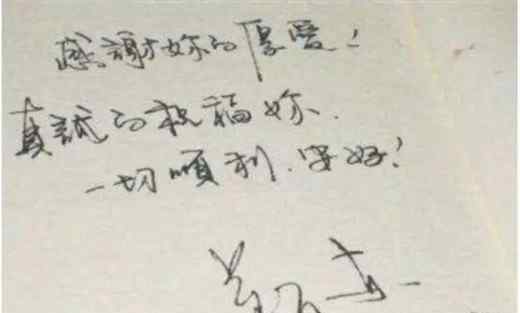 感謝妳的厚愛！
真誠的祝福妳.
一切順利.安好！